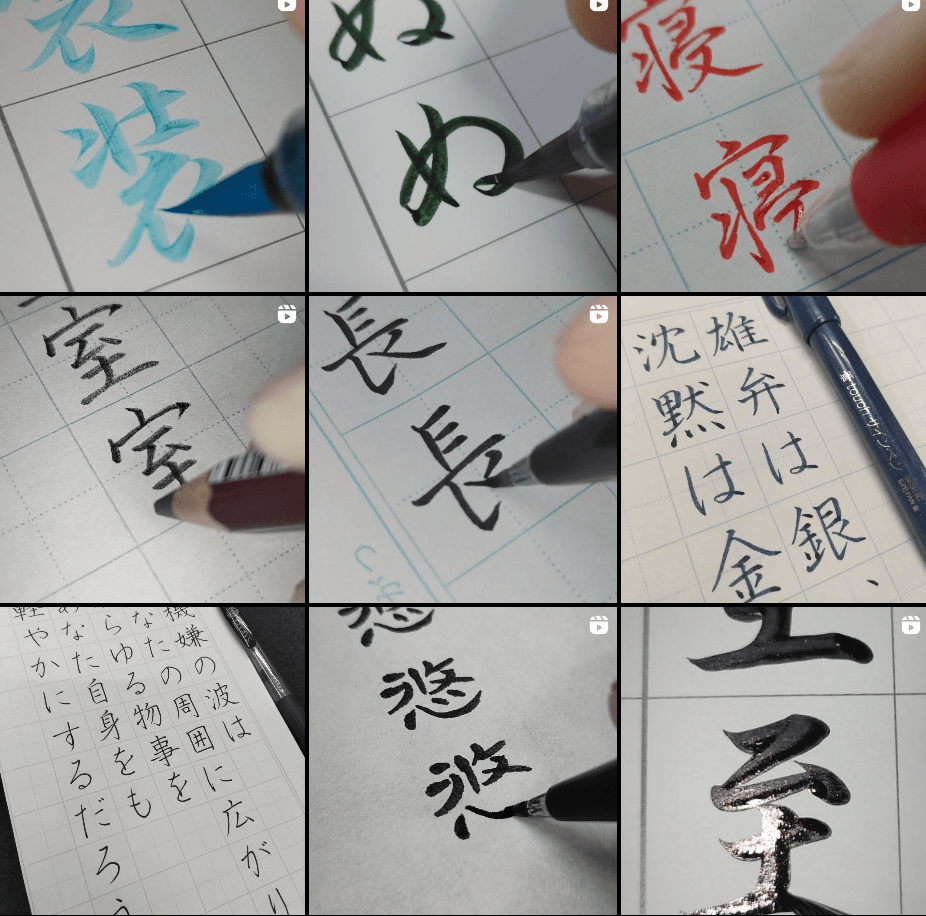 装
装
ぬ
ぬ
寝
寝
室
室
長
長
雄弁は銀、
沈黙は金
サインペン
機嫌の波は
なたの周囲に広がり
らゆる物事を
あなた自身をも
軽やかにするだろう
悠
悠
至